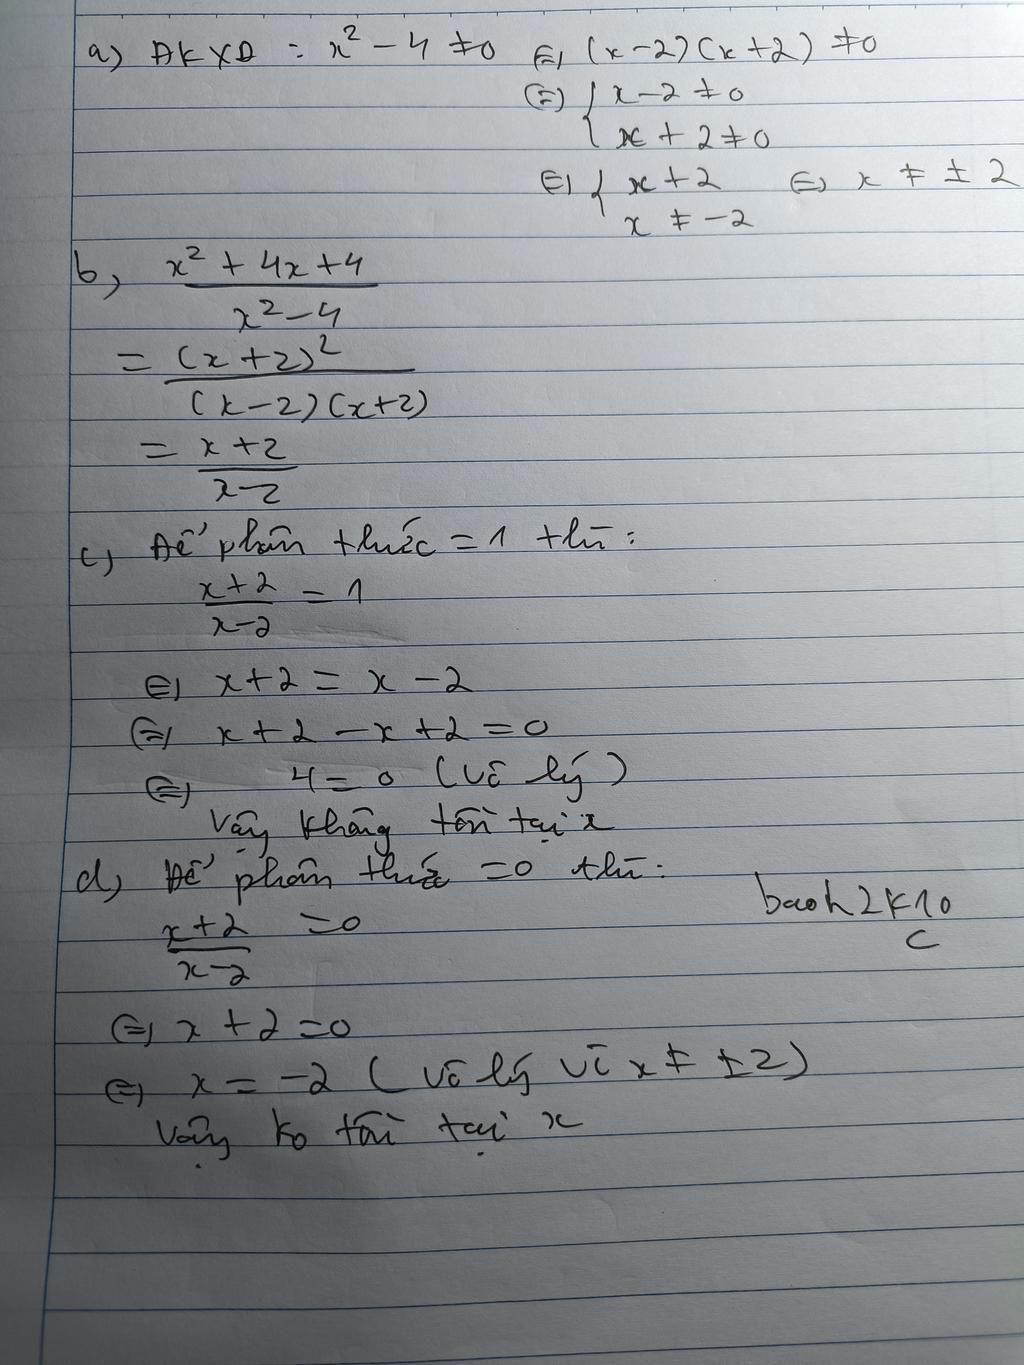 a) ĐKXĐ : x² - 4 ≠ 0 ⇔ (x-2)(x+2) ≠ 0
⇔ { x-2 ≠ 0
x + 2 ≠ 0
⇔ { x ≠ 2 ⇔ x ≠ ± 2
x ≠ -2
b, x² + 4x + 4
x² - 4
= (x+2)²
(x-2)(x+2)
= x+2
x-2
c, Để phân thức = 1 thì:
x+2 = 1
x-2
⇔ x+2 = x - 2
⇔ x + 2 - x + 2 = 0
⇔ 4 = 0 (vô lý)
Vậy không tồn tại x
d, Để phân thức = 0 thì:
x+2 = 0
x-2
baoh2k10
c
⇔ x + 2 = 0
⇔ x = -2 (vô lý vì x ≠ ±2)
Vậy ko tồn tại x